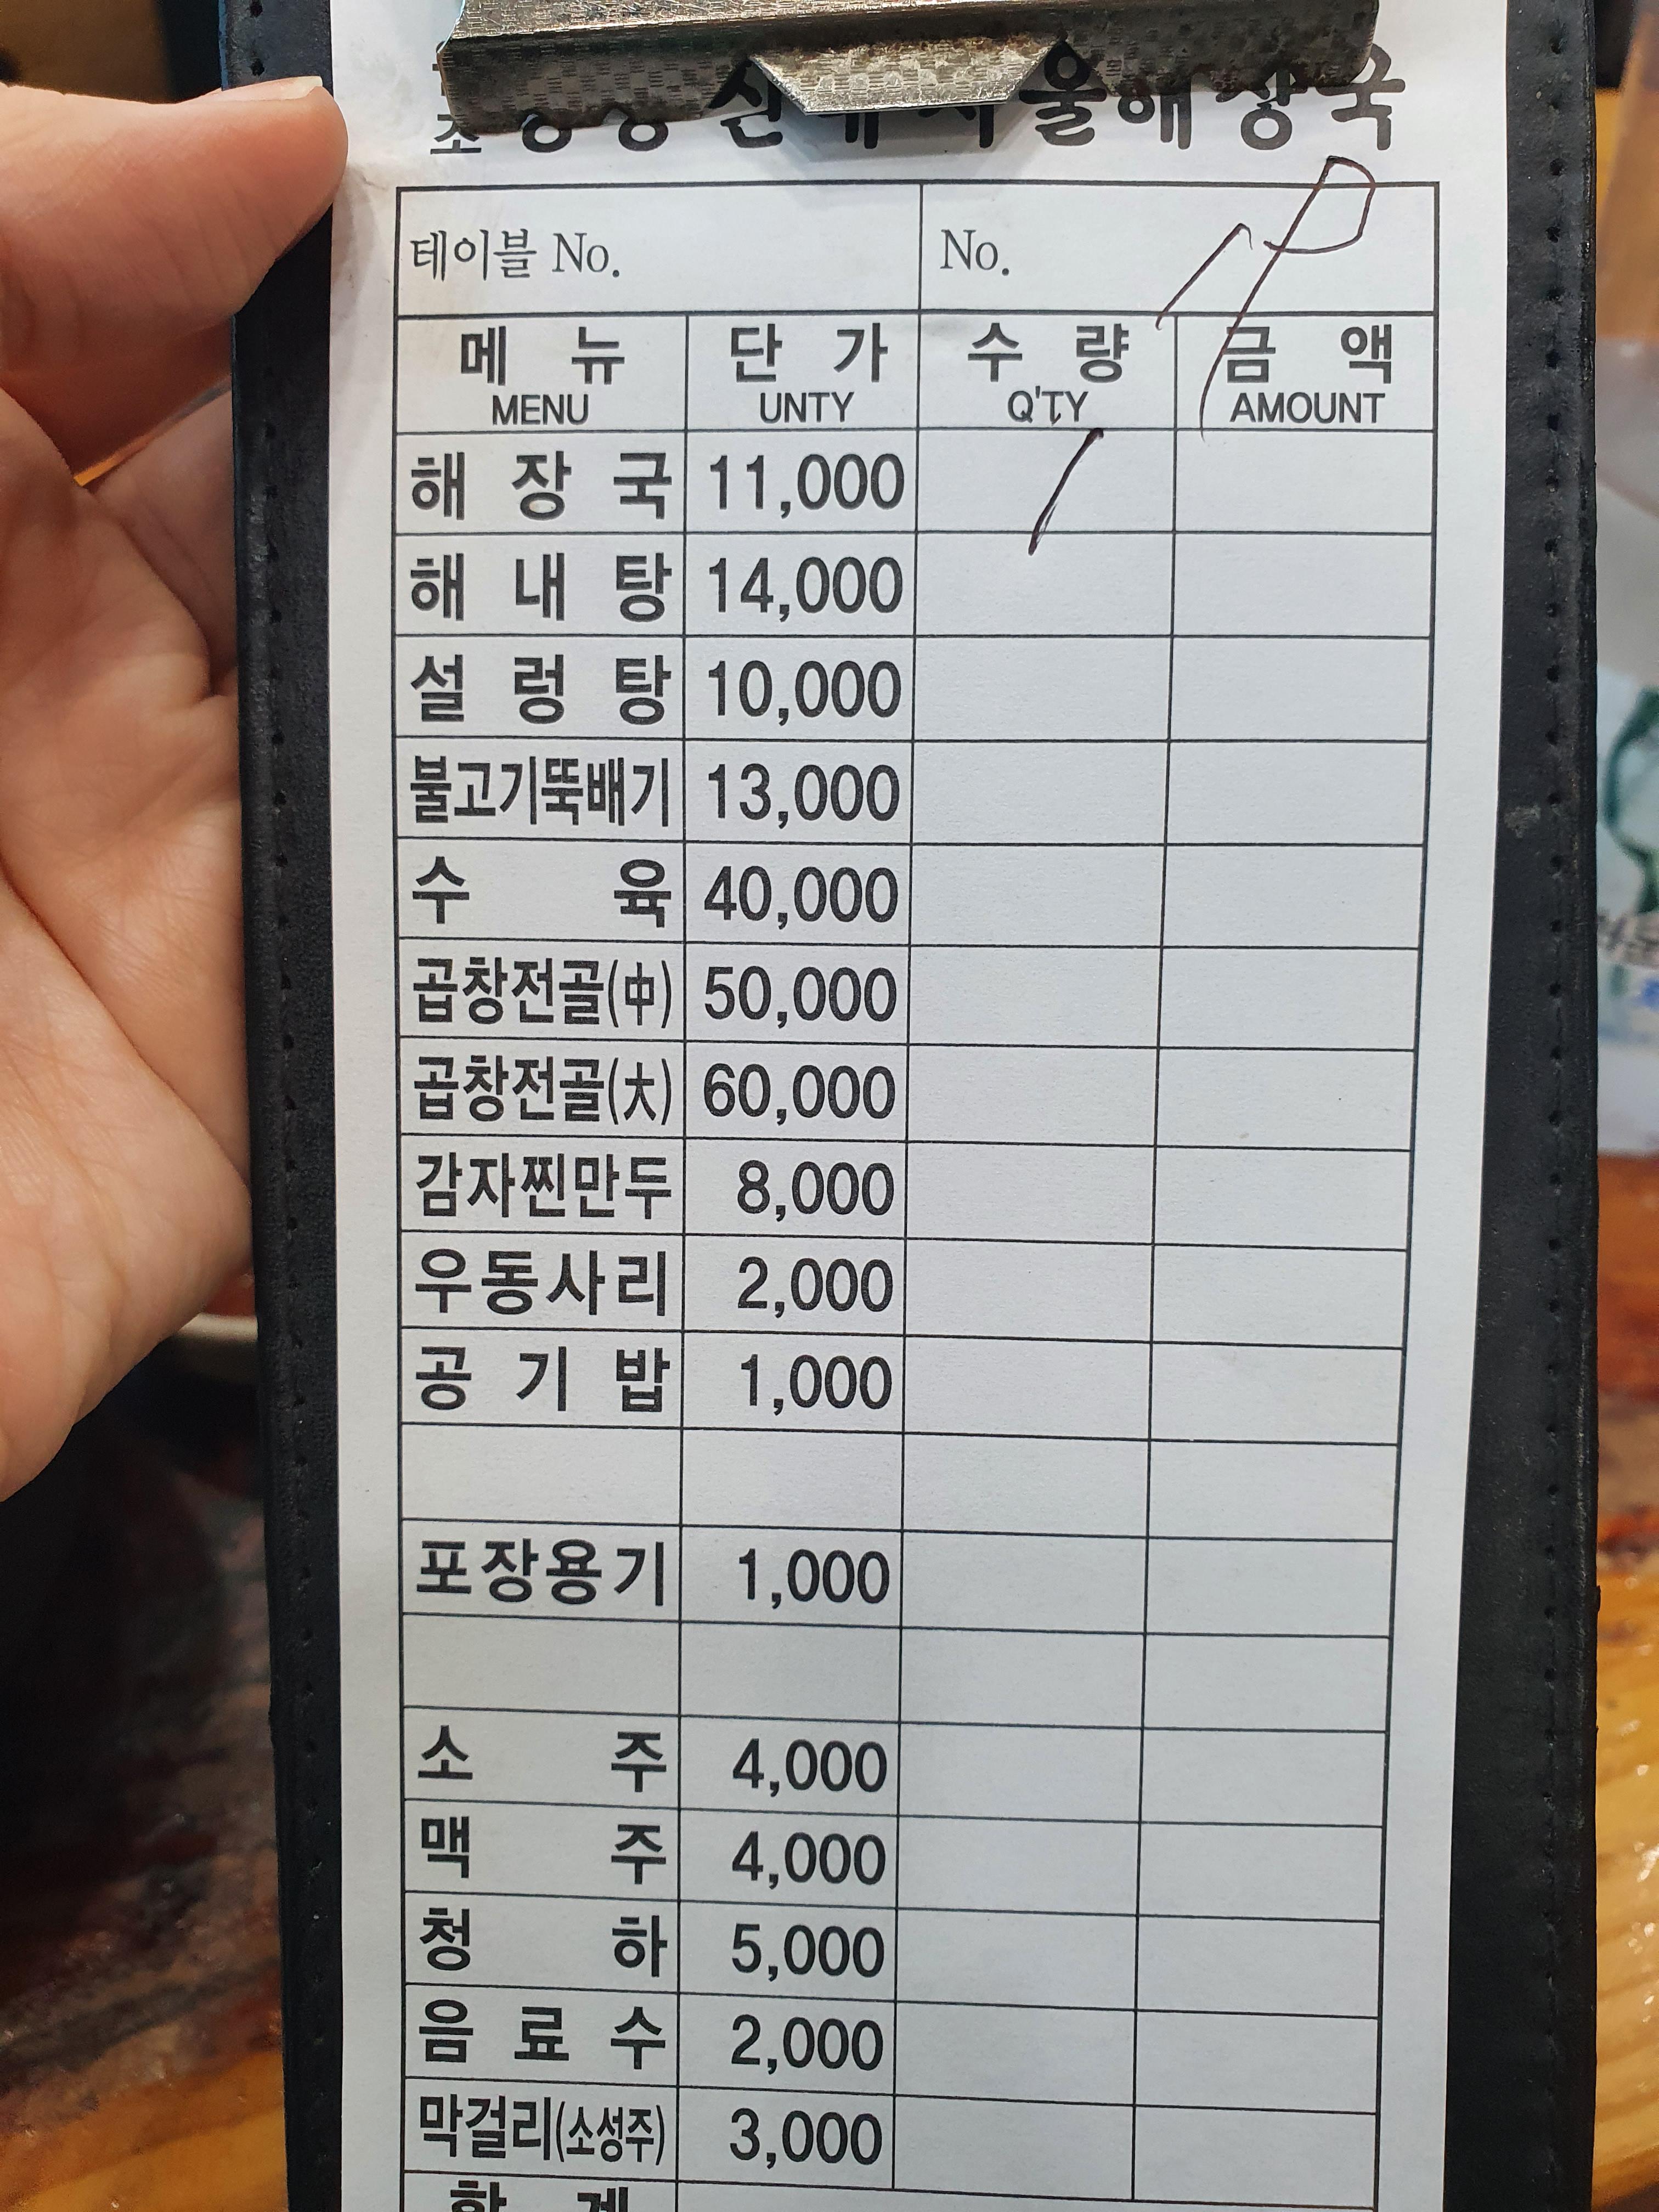 울해장국
테이블 No. No.
메뉴 단가 수량 금액
MENU UNTY Q'TY AMOUNT
해장국 11,000 /
해내탕 14,000
설렁탕 10,000
불고기뚝배기 13,000
수육 40,000
곱창전골(中) 50,000
곱창전골(大) 60,000
감자찐만두 8,000
우동사리 2,000
공기밥 1,000
포장용기 1,000
소주 4,000
맥주 4,000
청하 5,000
음료수 2,000
막걸리(소성주) 3,000
합계